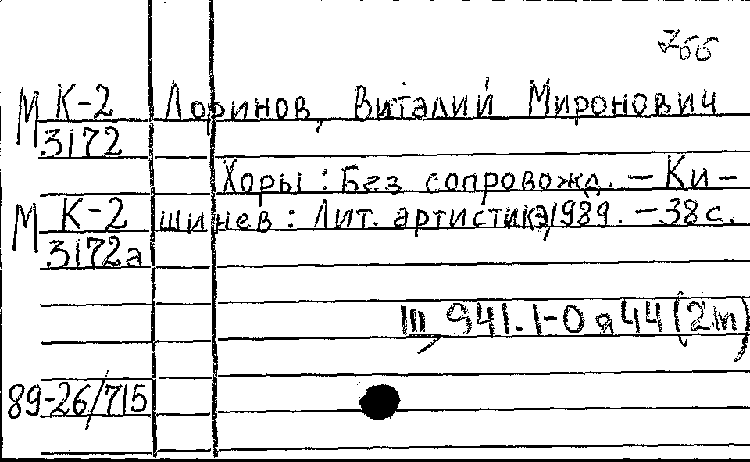 766
М К-2 Лоринов, Виталий Миронович
3172
Хоры : Без сопровожд. – Ки-
М К-2 шинев : Лит. артистикэ, 1989. – 38 с.
3172а
Щ 941.1-0 я 44 (2m),
89-26/715